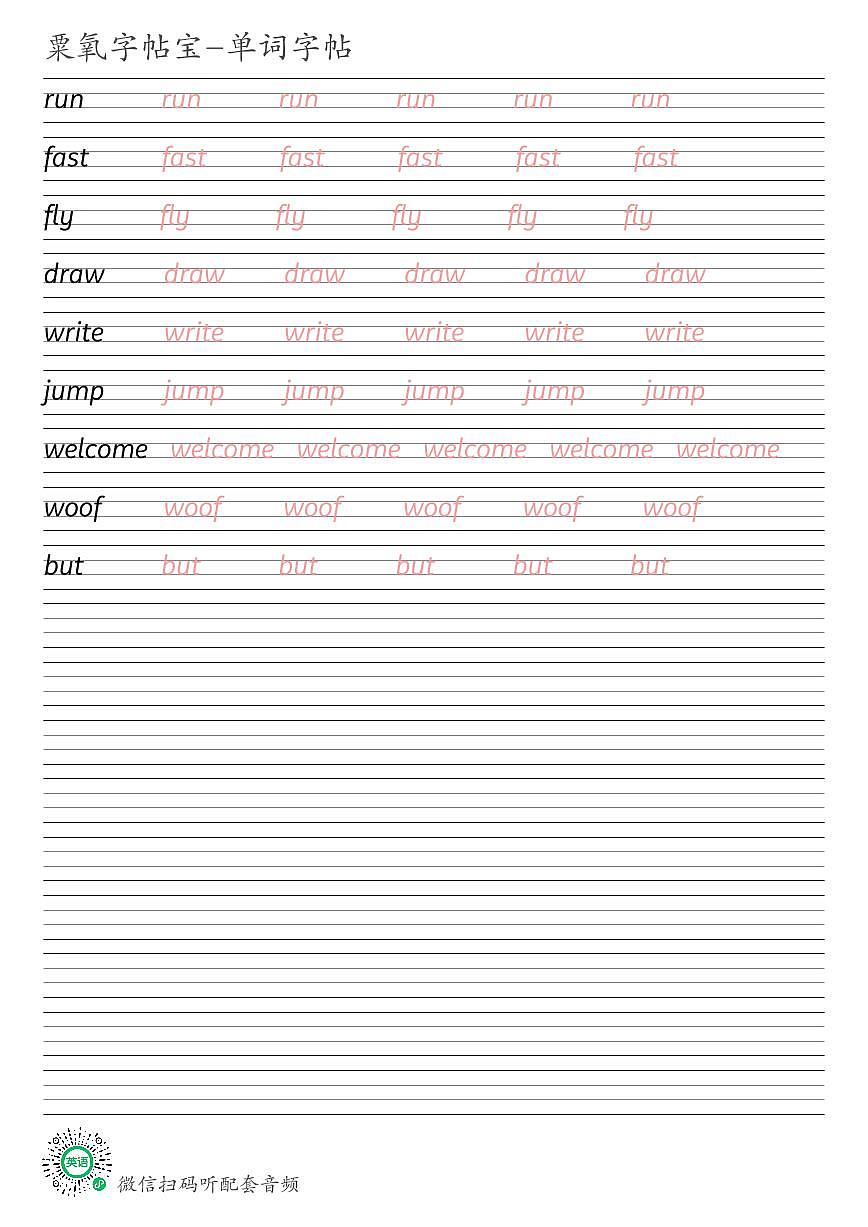 粟氧字帖宝-单词字帖
run run run run run run
fast fast fast fast fast fast
fly fly fly fly fly fly
draw draw draw draw draw draw
write write write write write write
jump jump jump jump jump jump
welcome welcome welcome welcome welcome welcome
woof woof woof woof woof woof
but but but but but but
英语
微信扫码听配套音频